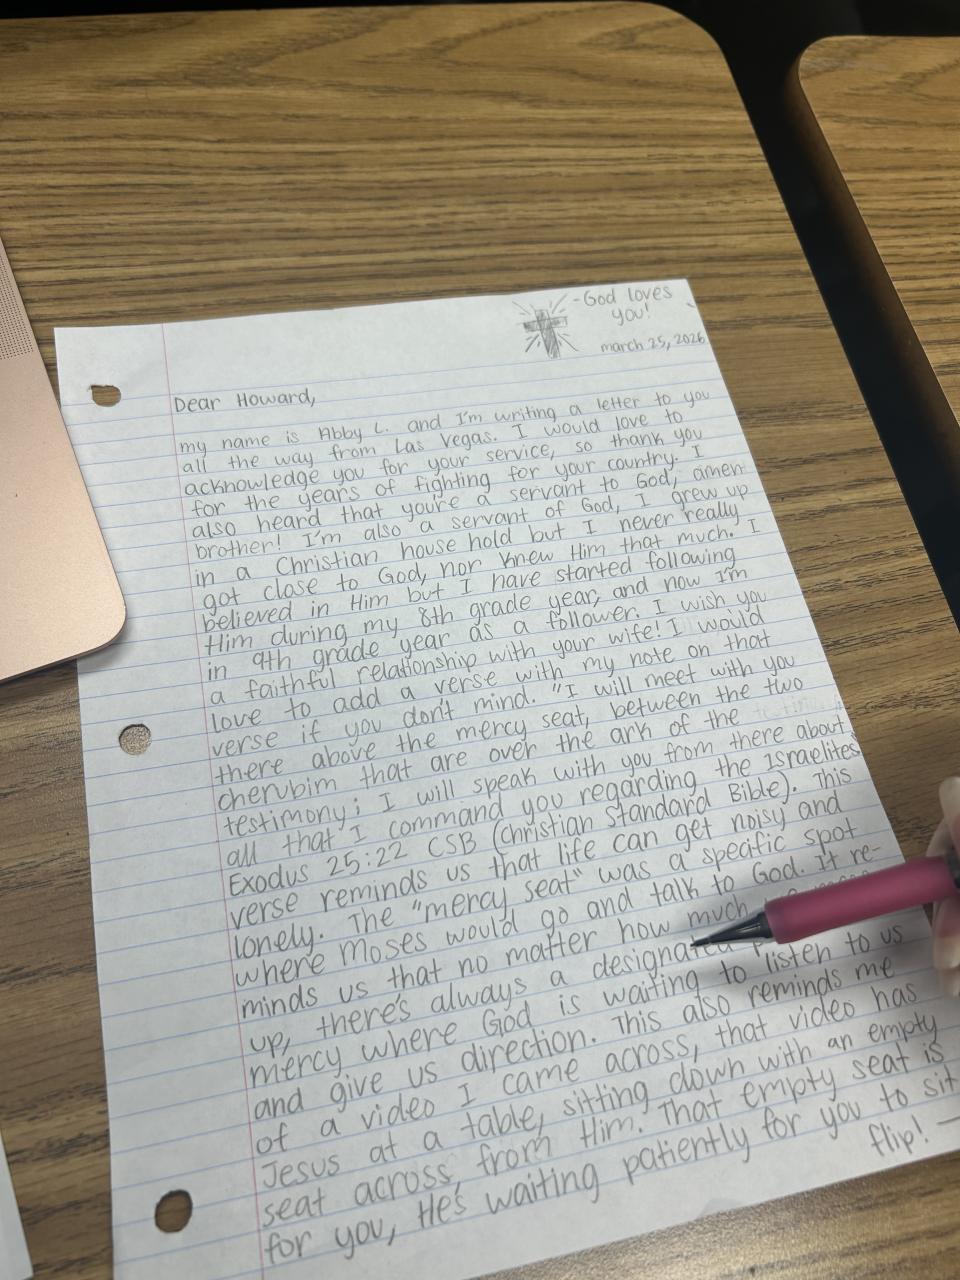 -God loves
you!
march 25, 2026
Dear Howard,
my name is Abby L. and I'm writing a letter to you
all the way from Las Vegas. I would love to
acknowledge you for your service, so thank you
for the years of fighting for your country. I
also heard that you're a servant to God, amen
brother! I'm also a servant of God, I grew up
in a Christian house hold but I never really
got close to God, nor knew Him that much. I
believed in Him but I have started following
Him during my 8th grade year, and now I'm
in 9th grade year as a follower. I wish you
a faithful relationship with your wife! I would
love to add a verse with my note on that
verse if you don't mind. "I will meet with you
there above the mercy seat, between the two
cherubim that are over the ark of the
testimony; I will speak with you from there about
all that I command you regarding the Israelites
Exodus 25:22 CSB (Christian Standard Bible). This
verse reminds us that life can get noisy and
lonely. The "mercy seat" was a specific spot
where Moses would go and talk to God. It re-
minds us that no matter how much
up, there's always a designated
mercy where God is waiting to listen to us
and give us direction. This also reminds me
of a video I came across, that video has
Jesus at a table, sitting down with an empty
seat across, from Him. That empty seat is
for you, He's waiting patiently for you to sit
flip!